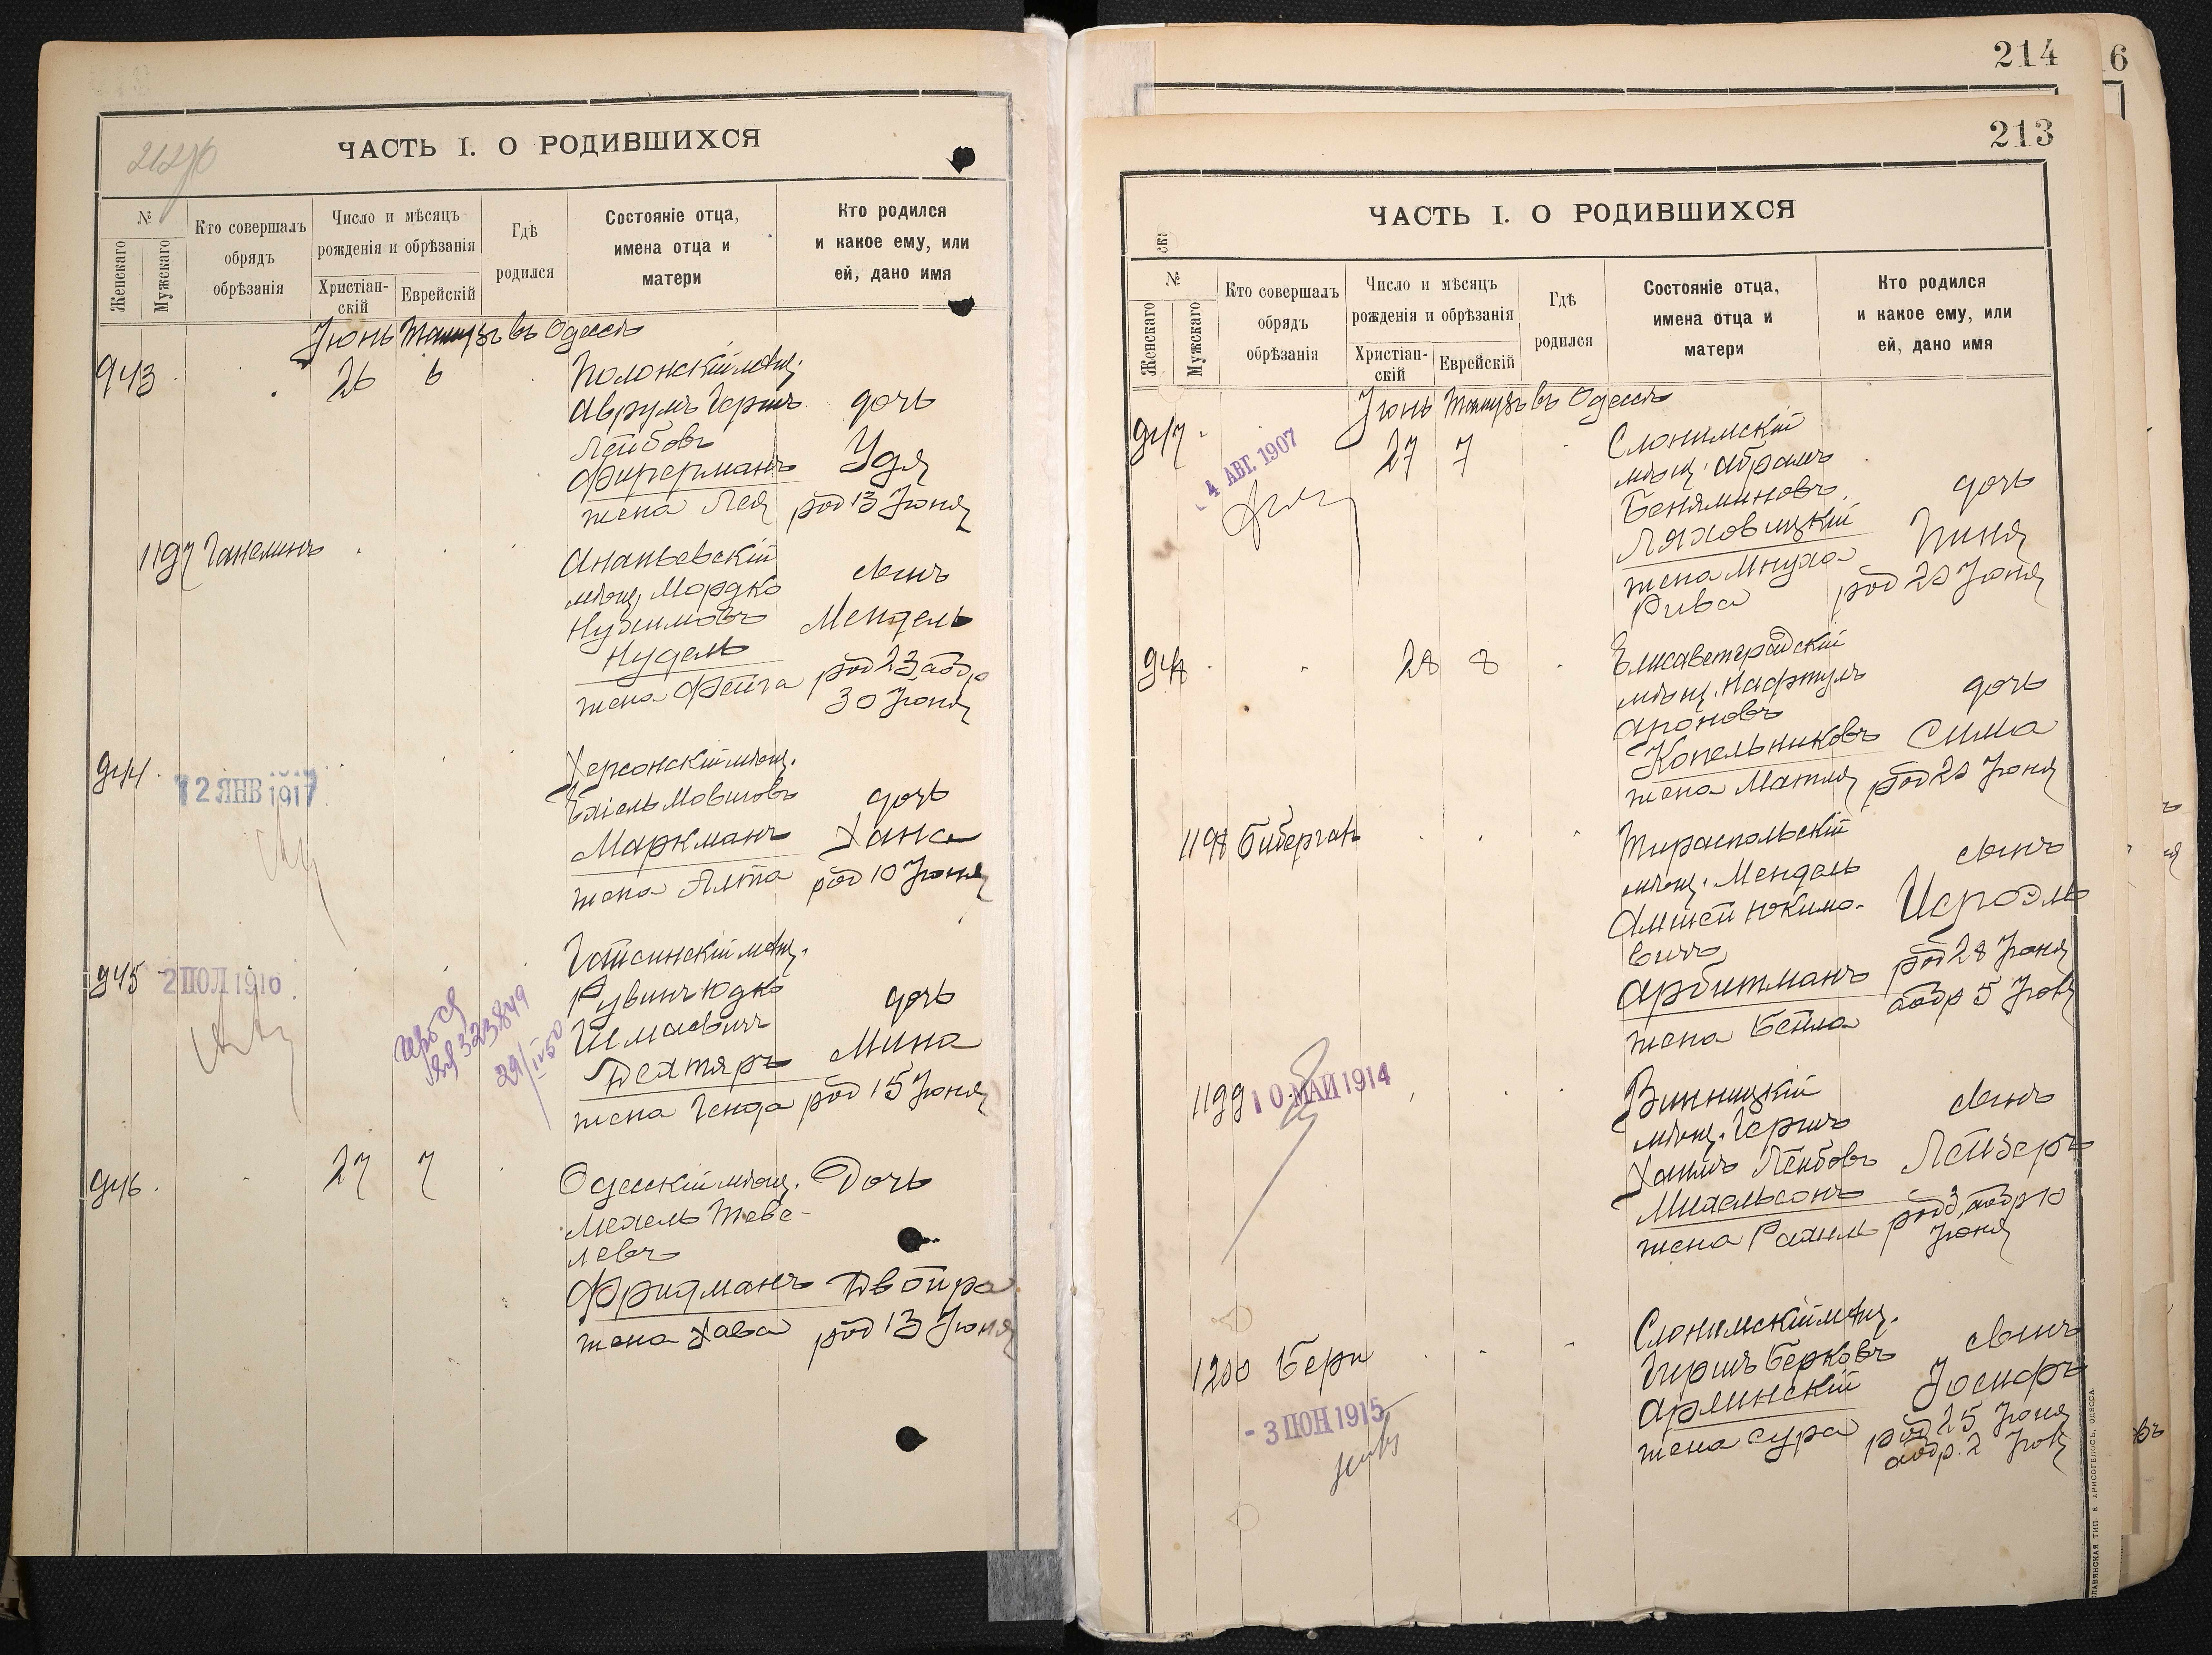 212об
ЧАСТЬ I. О РОДИВШИХСЯ
№
Женскаго
Мужскаго
Кто совершалъ
обрядъ
обрѣзанія
Число и мѣсяцъ
рожденія и обрѣзанія
Христіан-
скій
Еврейскій
Гдѣ
родился
Состояніе отца,
имена отца и
матери
Кто родился
и какое ему, или
ей, дано имя
Іюнь Тамузъ въ Одессѣ
943
26 6
Полонскій мѣщ.
Аврумъ Гершъ
Лейбовъ
Фирерманъ
жена Лея
дочь
Удя
род 13 Іюня
1197 Ганелинъ
Ананьевскій
мѣщ. Мордко
Нухимовъ
Нудель
жена Фейга
сынъ
Мендель
род 23, обр
30 Іюня
944
12 ЯНВ 1917
Херсонскій мѣщ.
Ехіель Мовшовъ
Маркманъ
жена Алта
дочь
Хана
род 10 Іюня
945
2 ІЮЛ 1916
323849
29/IV 50
Рувинъ Юдко
Шмаевичъ
Дехтяръ
жена Генда
дочь
Мина
род 15 Іюня
946
27 7
Одесскій мѣщ.
Мехель Теве-
левъ
Фридманъ
жена Хава
Дочь
Двойра
род 13 Іюня
214
6
213
ЧАСТЬ I. О РОДИВШИХСЯ
№
Женскаго
Мужскаго
Кто совершалъ
обрядъ
обрѣзанія
Число и мѣсяцъ
рожденія и обрѣзанія
Христіан-
скій
Еврейскій
Гдѣ
родился
Состояніе отца,
имена отца и
матери
Кто родился
и какое ему, или
ей, дано имя
Іюнь Тамузъ въ Одессѣ
947
4 АВГ. 1907
27 7
Слонимскій
мѣщ. Абрамъ
Беняминовъ
Ляховицкій
жена Мнуха
Рива
дочь
Пиня
род 20 Іюня
948
28 8
Елисаветградскій
мѣщ. Нафтулъ
Ароновъ
Копельниковъ
жена Матля
дочь
Сима
род 20 Іюня
1198 Биберганъ
Тираспольскій
мѣщ. Мендель
Амшей Юкимо-
вичъ
Арбитманъ
жена Бейла
сынъ
Исроэль
род 28 Іюня
обр 5 Іюля
1199
10 МАЙ 1914
Винницкій
мѣщ. Гершъ
Хаимъ Лейбовъ
Михельсонъ
жена Рахиль
сынъ
Лейзеръ
род 3, обр 10
Іюня
1200 Бери
- 3 ІЮН 1915
Слонимскій мѣщ.
Гиршъ Берковъ
Арлинскій
жена Сура
сынъ
Іосифъ
род 25 Іюня
обр. 2 Іюля
СЛАВЯНСКАЯ ТИП. Е. ХРИСОГЕЛОСЪ, ОДЕССА.